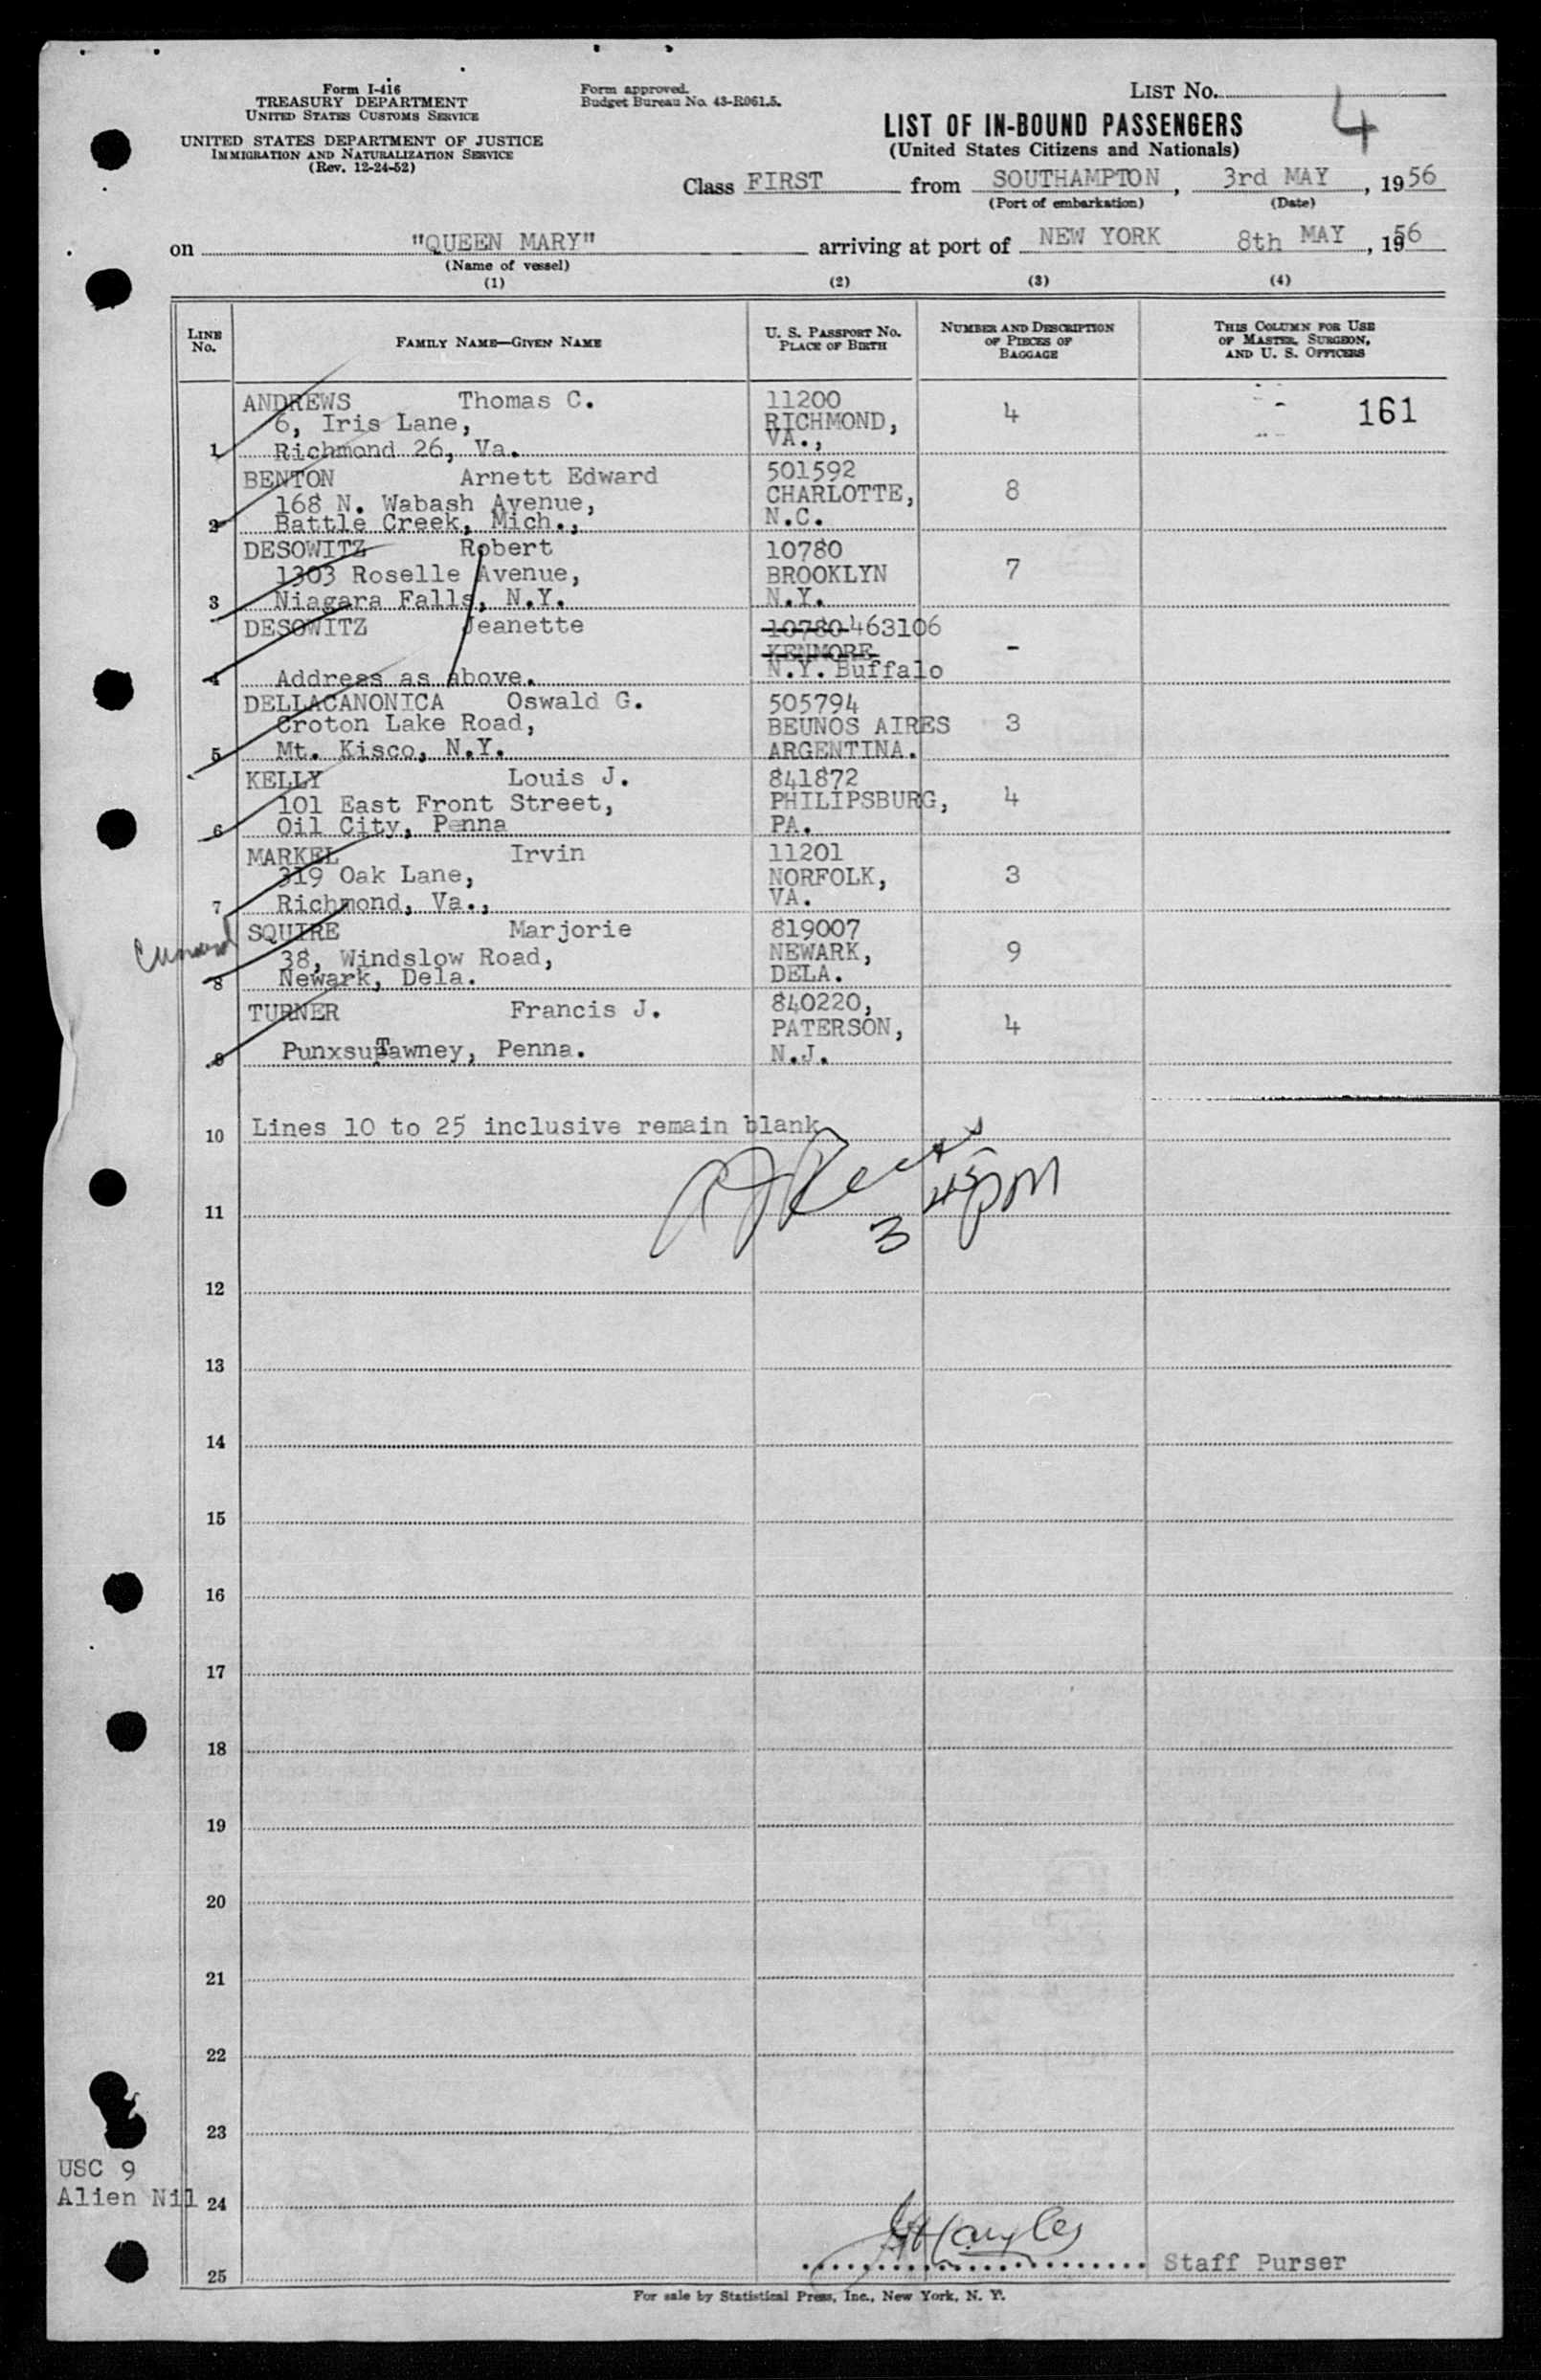 Form I-416
TREASURY DEPARTMENT
UNITED STATES CUSTOMS SERVICE
UNITED STATES DEPARTMENT OF JUSTICE
IMMIGRATION AND NATURALIZATION SERVICE
(Rev. 12-24-52)
Form approved.
Budget Bureau No. 43-R061.5.
LIST No.
4
LIST OF IN-BOUND PASSENGERS
(United States Citizens and Nationals)
Class FIRST from SOUTHAMPTON, 3rd MAY, 1956
(Port of embarkation) (Date)
on "QUEEN MARY" arriving at port of NEW YORK 8th MAY, 1956
(Name of vessel)
(1) (2) (3) (4)
LINE No. FAMILY NAME—GIVEN NAME U. S. PASSPORT NO. PLACE OF BIRTH NUMBER AND DESCRIPTION OF PIECES OF BAGGAGE THIS COLUMN FOR USE OF MASTER, SURGEON, AND U. S. OFFICERS
ANDREWS Thomas C. 11200 4 161
6, Iris Lane, RICHMOND,
1 Richmond 26, Va. VA.,
BENTON Arnett Edward 501592
168 N. Wabash Avenue, CHARLOTTE, 8
2 Battle Creek, Mich., N.C.
DESOWITZ Robert 10780
1303 Roselle Avenue, BROOKLYN 7
3 Niagara Falls, N.Y. N.Y.
DESOWITZ Jeanette 10780 463106
KENMORE -
4 Address as above. N.Y. Buffalo
DELLACANONICA Oswald G. 505794
Croton Lake Road, BEUNOS AIRES 3
5 Mt. Kisco, N.Y. ARGENTINA.
KELLY Louis J. 841872
101 East Front Street, PHILIPSBURG, 4
6 Oil City, Penna PA.
MARKEL Irvin 11201
319 Oak Lane, NORFOLK, 3
7 Richmond, Va., VA.
SQUIRE Marjorie 819007
38, Windslow Road, NEWARK, 9
8 Newark, Dela. DELA.
TURNER Francis J. 840220,
PATERSON, 4
9 PunxsupTawney, Penna. N.J.
10 Lines 10 to 25 inclusive remain blank
3 45 PM
11
12
13
14
15
16
17
18
19
20
21
22
23
USC 9
Alien Nil 24
Staff Purser
25
For sale by Statistical Press, Inc., New York, N. Y.